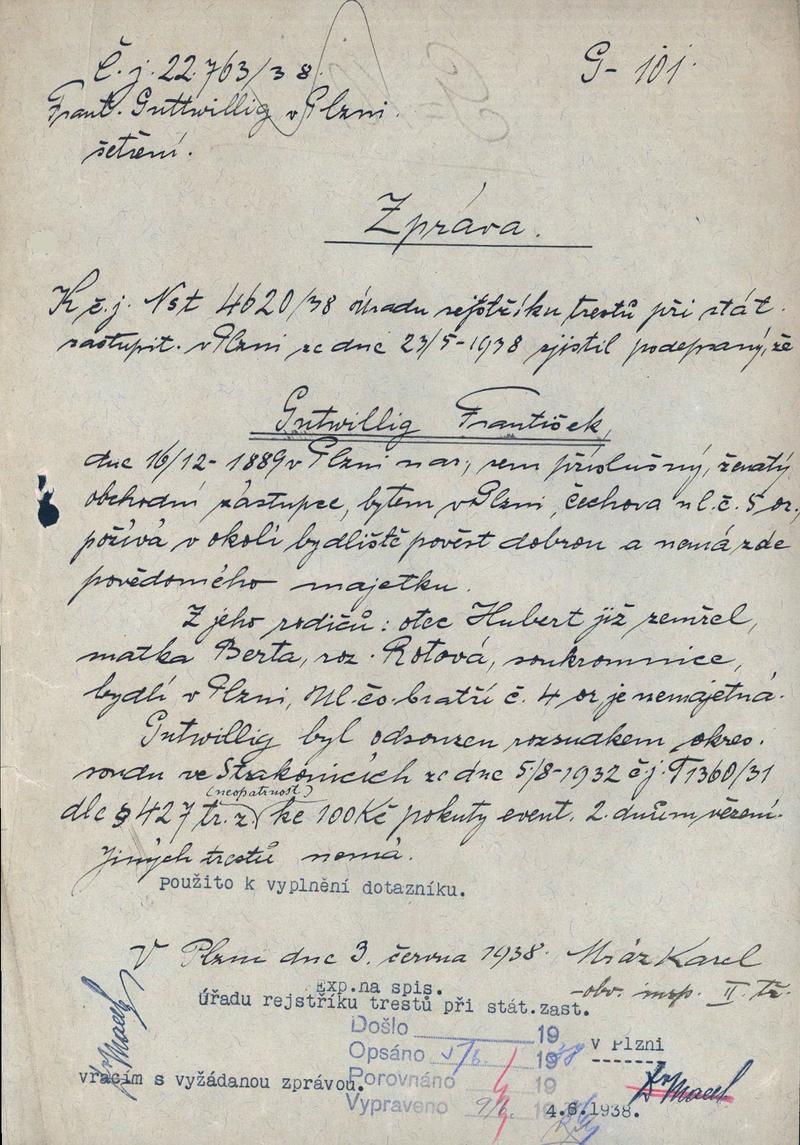 Č.j. 22.763/38.
G- 101.
Frant. Guttwillig v Plzni.
šetření.
Zpráva.
K č.j. Nst 4620/38 úřadu rejstříku trestů při stát.
zastupit. v Plzni ze dne 23/5-1938 zjistil podepsaný, že
Gutwillig František,
dne 16/12-1889 v Plzni nar., sem příslušný, ženatý
obchodní zástupce, bytem v Plzni, Čechova ul. č. 5 or.,
požívá v okolí bydliště pověst dobrou a nemá zde
povědomého majetku.
Z jeho rodičů: otec Hubert již zemřel,
matka Berta, roz. Rotová, soukromnice,
bydlí v Plzni, Ul. čs. bratří č. 4 or, je nemajetná.
Gutwillig byl odsouzen rozsudkem okres.
soudu ve Strakonicích ze dne 5/8-1932 č.j. T1360/31
(neopatrnost)
dle § 427 tr. z. ke 100 Kč pokuty event. 2. dnům vězení.
Jiných trestů nemá.
Použito k vyplnění dotazníku.
V Plzni dne 3. června 1938. Mráz Karel
obv. insp. II tř.
Exp.na spis.
Úřadu rejstříku trestů při stát.zast.
Došlo 19
v Plzni
Opsáno 19 38
vracím s vyžádanou zprávou.
Porovnáno 19
Dr Macek
Vypraveno 9/6. 19
4.6.1938.
Dr Macek